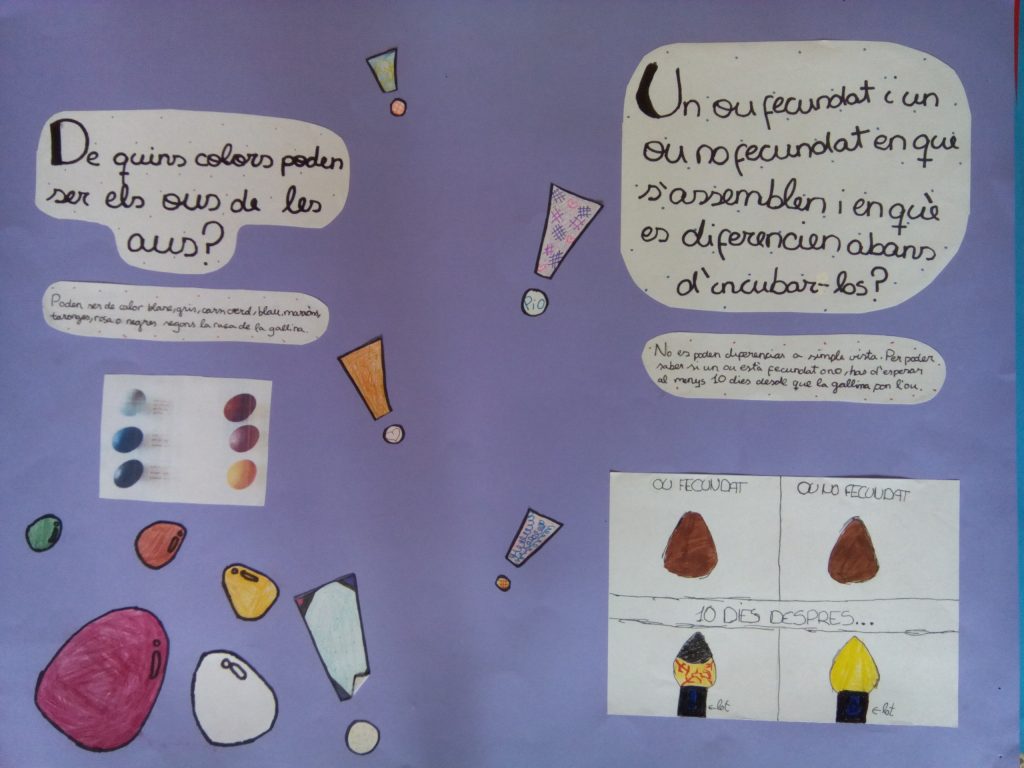 De quins colors poden
ser els ous de les
aus?
Poden ser de color blanc, gris, carn verd, blau, marróns,
taronges, rosa o negres segons la rasa de la gallina.
Un ou fecundat i un
ou no fecundat en que
s'assemblen i en què
es diferencien abans
d'incubar-los?
No es poden diferenciar a simple vista. Per poder
saber si un ou està fecundat o no, has d'esperar
al menys 10 dies desde que la gallina pon l'ou.
PiO
OU FECUNDAT
OU NO FECUNDAT
10 DIES DESPRES...
lot
lot